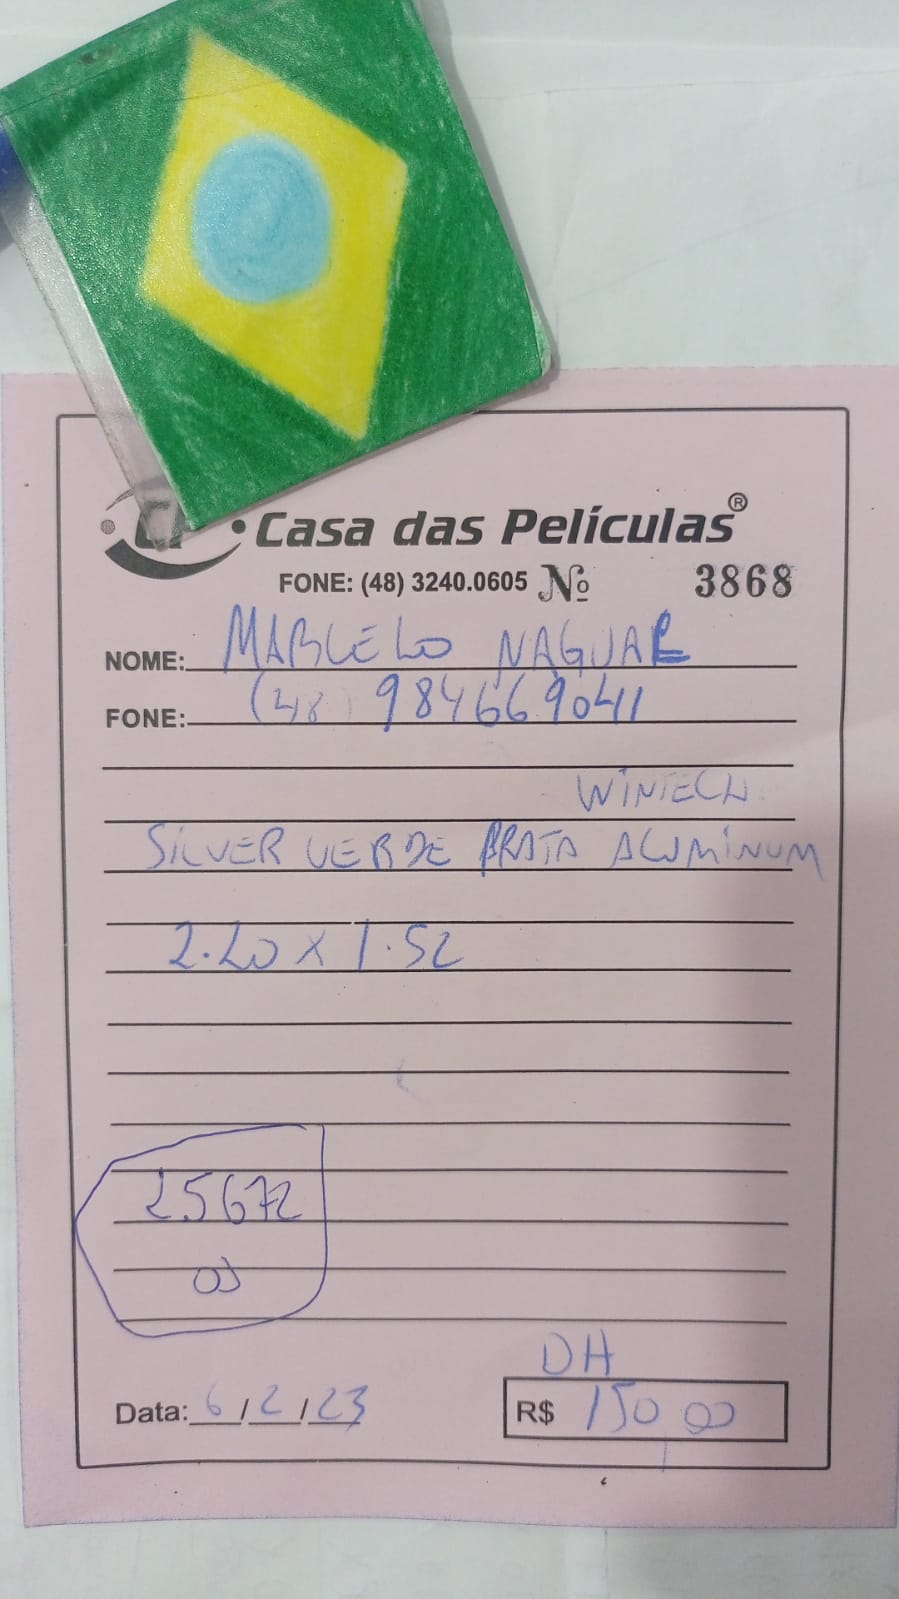 Casa das Películas®
FONE: (48) 3240.0605 Nº 3868
NOME: MARCELO NAGUAL
FONE: (48) 984669041
WINTECH
SILVER VERDE PRATA ALUMINUM
2.20 x 1.52
25672
00
DH
Data: 6/2/23 R$ 150 00